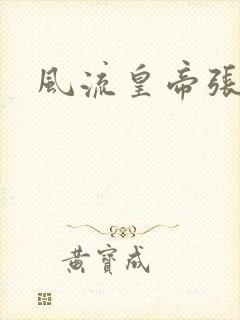 風流皇帝張
黃寶成